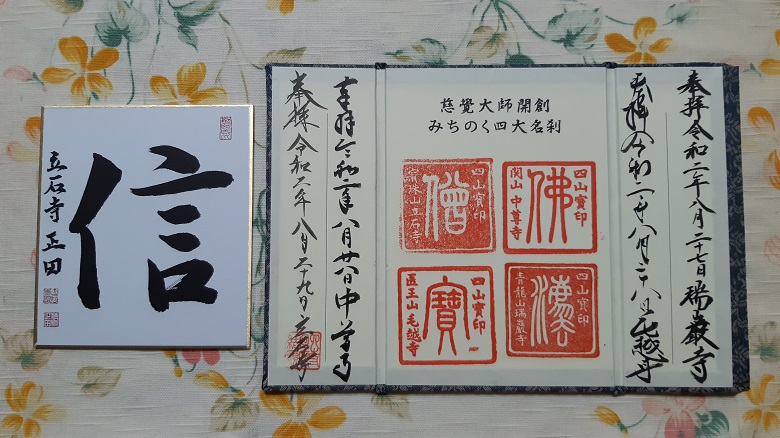 奉拝令和二年八月二十七日瑞巖寺
奉拝令和二年八月二十八日毛越寺
慈覺大師開創
みちのく四大名刹
四山寶印
佛
関山 中尊寺
四山寶印
僧
寳珠山立石寺
四山寶印
灋
青龍山瑞巌寺
四山寶印
寶
医王山 毛越寺
奉拝令和二年八月廿八日中尊寺
奉拝令和二年八月二十九日立石寺
信
立石寺 正田